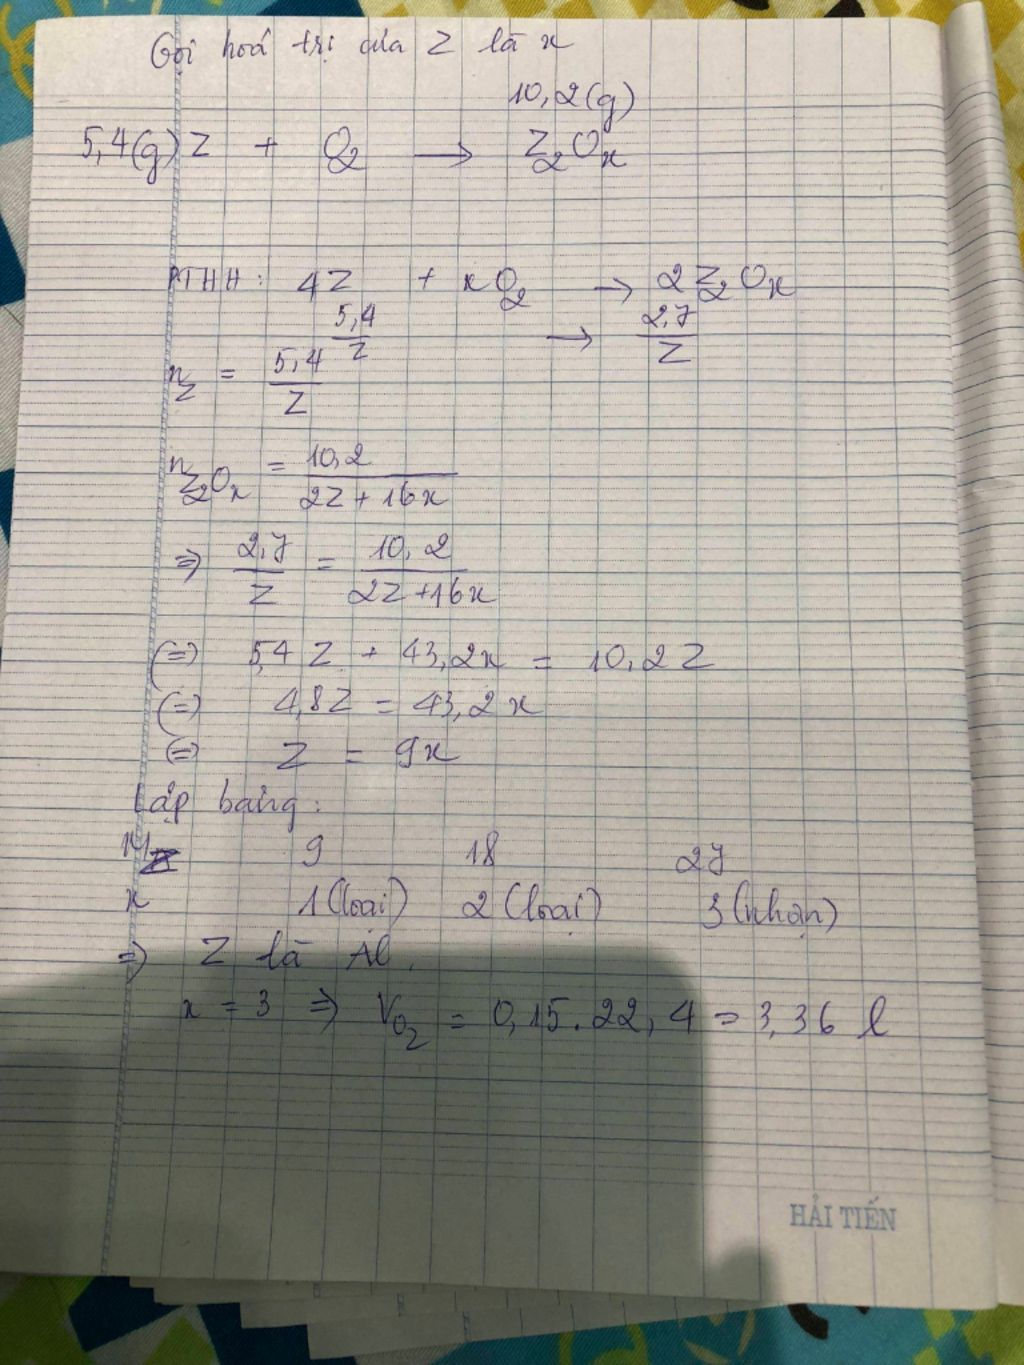 Gọi hoá trị của Z là x
10,2(g)
5,4(g) Z + O2 → Z2Ox
PTHH: 4Z + xO2 → 2Z2Ox
5,4/Z → 2,7/Z
nZ = 5,4/Z
nZ2Ox = 10,2/(2Z + 16x)
=> 2,7/Z = 10,2/(2Z + 16x)
(=) 5,4 Z + 43,2x = 10,2 Z
(=) 4,8Z = 43,2 x
(=) Z = 9x
Lập bảng:
MZ 9 18 27
x 1 (loại) 2 (loại) 3 (nhận)
=> Z là Al.
x = 3 => VO2 = 0,15.22,4 = 3,36 l
HẢI TIẾN